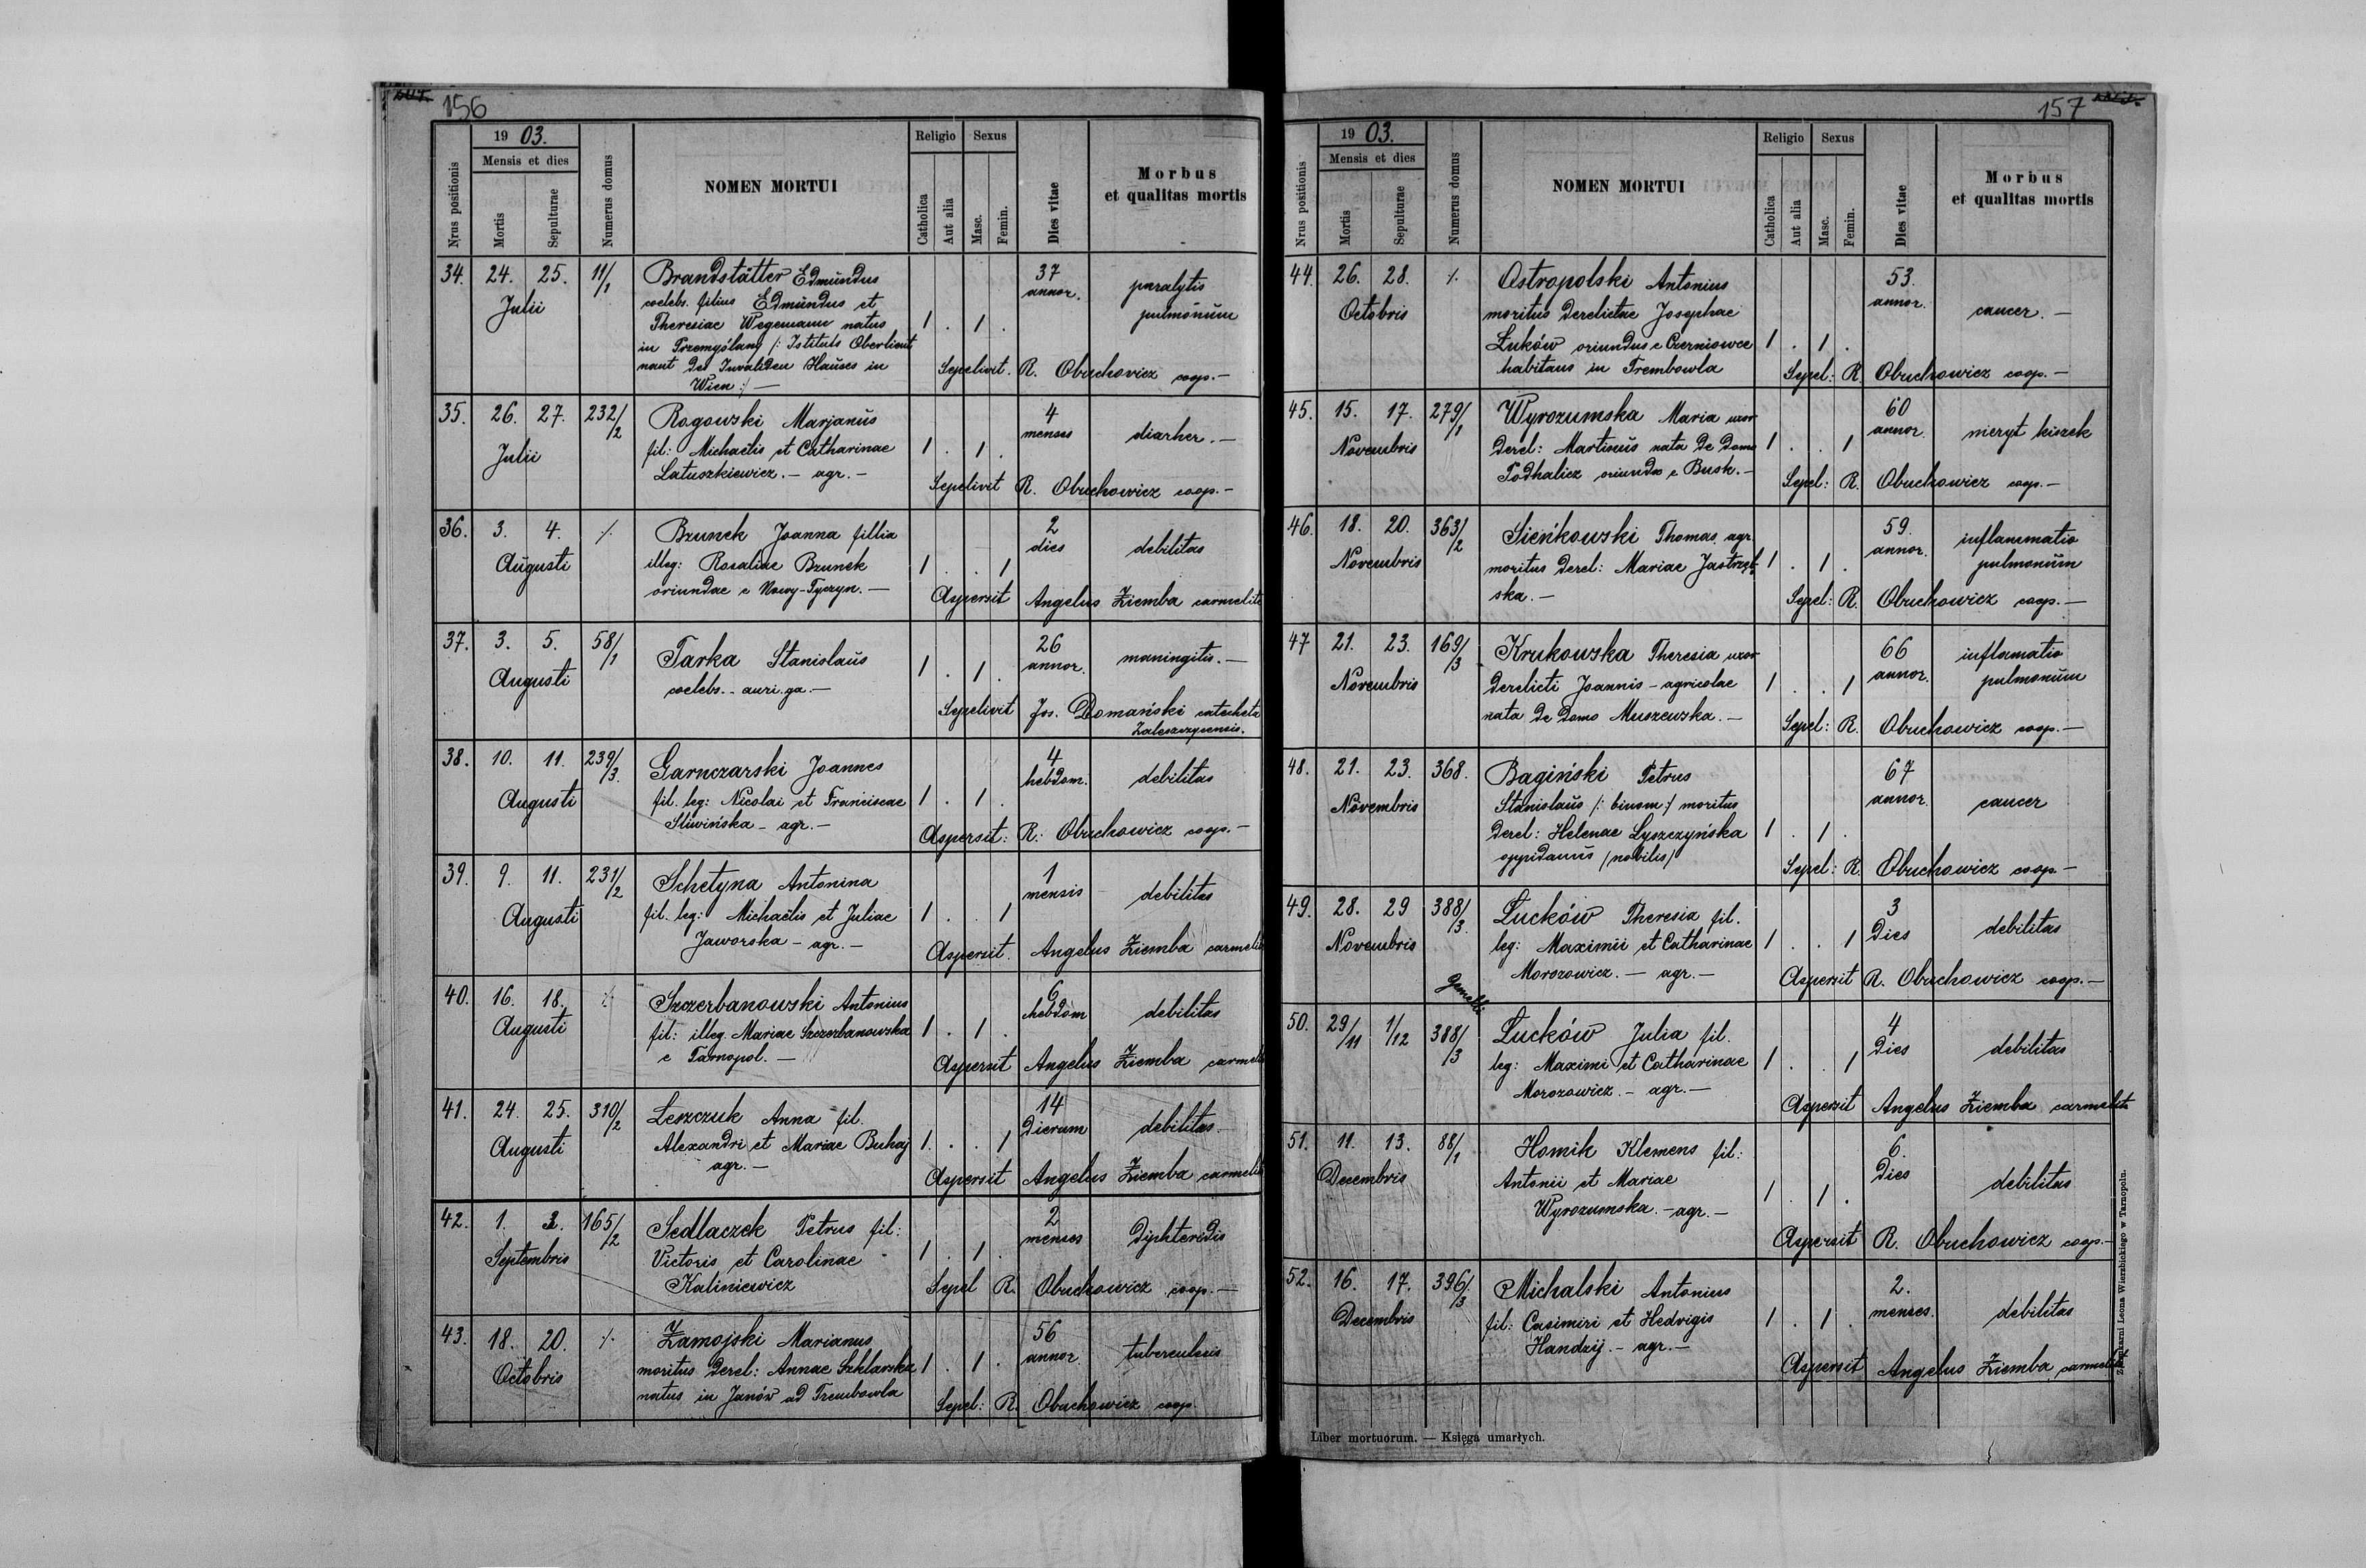 156
19 03.
Nrus positionis
Mensis et dies
Mortis
Sepulturae
Numerus domus
NOMEN MORTUI
Religio
Catholica
Aut alia
Sexus
Masc.
Femin.
Dies vitae
Morbus
et qualitas mortis
34. 24. 25. 11/1 Brandstätter Edmŭndus 37
Julii coelebs. filius Edmŭndus et annor. paralytis
Theresiae Wegemann natus 1 . 1 . pulmonŭm
in Przemyślany /: Istituts Oberlieut
nant des Invaliden Hauses in Sepelivit. R. Obuchovicz coop. –
Wien :/ –
35. 26. 27. 232/2 Rogowski Marjanŭs 4
Julii fil: Michaëlis et Catharinae 1 . 1 . menses diarher. –
Latuszkiewicz. – agr. –
Sepelivit R. Obuchowicz coop. –
36. 3. 4. ·/. Brunek Joanna fillia 2
Augusti illeg: Rosaliae Brunek 1 . . 1 dies debilitas
oriundae e Nowy-Tyczyn. –
Aspersit Angelus Ziemba carmelit
37. 3. 5. 58/1 Tarka Stanislaŭs 26
Augusti coelebs. – auriga. – 1 . 1 . annor. maningitis. –
Sepelivit Jos. Domański catecheta
Zaleszczycensis.
38. 10. 11. 239/3. Garnczarski Joannes 4
Augusti fil. leg: Nicolai et Franciscae 1 . 1 . hebdom. debilitas
Sliwińska – agr. –
Aspersit: R: Obuchowicz coop. –
39. 9. 11. 231/2 Schetyna Antonina 1
Augusti fil. leg: Michaëlis et Juliae 1 . . 1 mensis debilitas
Jaworska – agr. –
Aspersit. Angelus Ziemba carmelit
40. 16. 18. ·/. Szczerbanowski Antonius 6
Augusti fil: illeg. Mariae Szczerbanowska 1 . 1 . hebdom debilitas
e Tarnopol. –
Aspersit Angelus Ziemba carmelit
41. 24. 25. 310/2 Leszczuk Anna fil. 14
Augusti Alexandri et Mariae Buhaj 1. . . 1 dierum debilitas
agr. –
Aspersit Angelus Ziemba carmelit
42. 1. 2. 165/2 Sedlaczek Petrus fil: 2
Septembris Victoris et Carolinae 1 . 1 . menses Dyphteridis
Kaliniewicz
Sepel R. Obuchowicz coop. –
43. 18. 20. ·/. Zamojski Marianus 56
Octobris moritus derel: Annae Szklarska 1 . 1 . annor. tuberculosis
natus in Janów ad Trembowla
Sepel: R. Obuchowicz coop.
157
19 03.
Nrus positionis
Mensis et dies
Mortis
Sepulturae
Numerus domus
NOMEN MORTUI
Religio
Catholica
Aut alia
Sexus
Masc.
Femin.
Dies vitae
Morbus
et qualitas mortis
44. 26. 28. ·/. Ostropolski Antonius 53.
Octobris moritus derelictae Josephae annor. cancer. –
Łuków oriundus e Czerniowce 1 . 1 .
habitans in Trembowla Sepel: R. Obuchowicz coop. –
45. 15. 17. 279/1 Wyrozumska Maria uxor 60
Novembris derel: Martinŭs nata de domo 1 . . 1 annor. nieżyt kiszek
Podhalicz oriunda e Busk. – Sepel: R. Obuchowicz coop. –
46. 18. 20. 363/2 Sieńkowski Thomas agr. 59.
Novembris moritus derel: Mariae Jastrzęb 1 . 1 . annor. inflammatio
ska. – pulmonŭm
Sepel: R. Obuchowicz coop. –
47 21. 23. 169/3 Krukowska Theresia uxor 66
Novembris derelicti Joannis – agricolae 1 . . 1 annor. inflamatio
nata de domo Muszewska. – pulmonŭm
Sepel: R. Obuchowicz coop. –
48. 21. 23. 368. Bagiński Petrus 67
Novembris Stanislaŭs /: binom :/ moritus annor. cancer
derel: Helenae Lyszczyńska 1 . 1 .
oppidanus /nobilis/ Sepel: R. Obuchowicz coop. –
49. 28. 29 388/3. Łucków Theresia fil. 3
Novembris leg: Maximii et Catharinae 1 . . 1 dies debilitas
Morozowicz. – agr. – Aspersit R. Obuchowicz coop. –
Gemelli
50. 29/11 1/12 388/3 Łucków Julia fil. 4
leg: Maximi et Catharinae 1 . . 1 dies debilitas
Morozowicz. – agr. –
Aspersit Angelus Ziemba carmelita
51. 11. 13. 88/1 Homik Klemens fil: 6.
Decembris Antonii et Mariae 1 . 1 . dies debilitas
Wyrozumska. – agr. –
Aspersit R. Obuchowicz coop. –
52. 16. 17. 396/3 Michalski Antonius 2.
Decembris fil: Casimiri et Hedvigis 1 . 1 . menses. debilitas
Handzij. – agr. –
Aspersit Angelus Ziemba carmelita
Liber mortuorum. — Księga umarłych.
Z drukarni Leona Wierzbickiego w Tarnopolu.